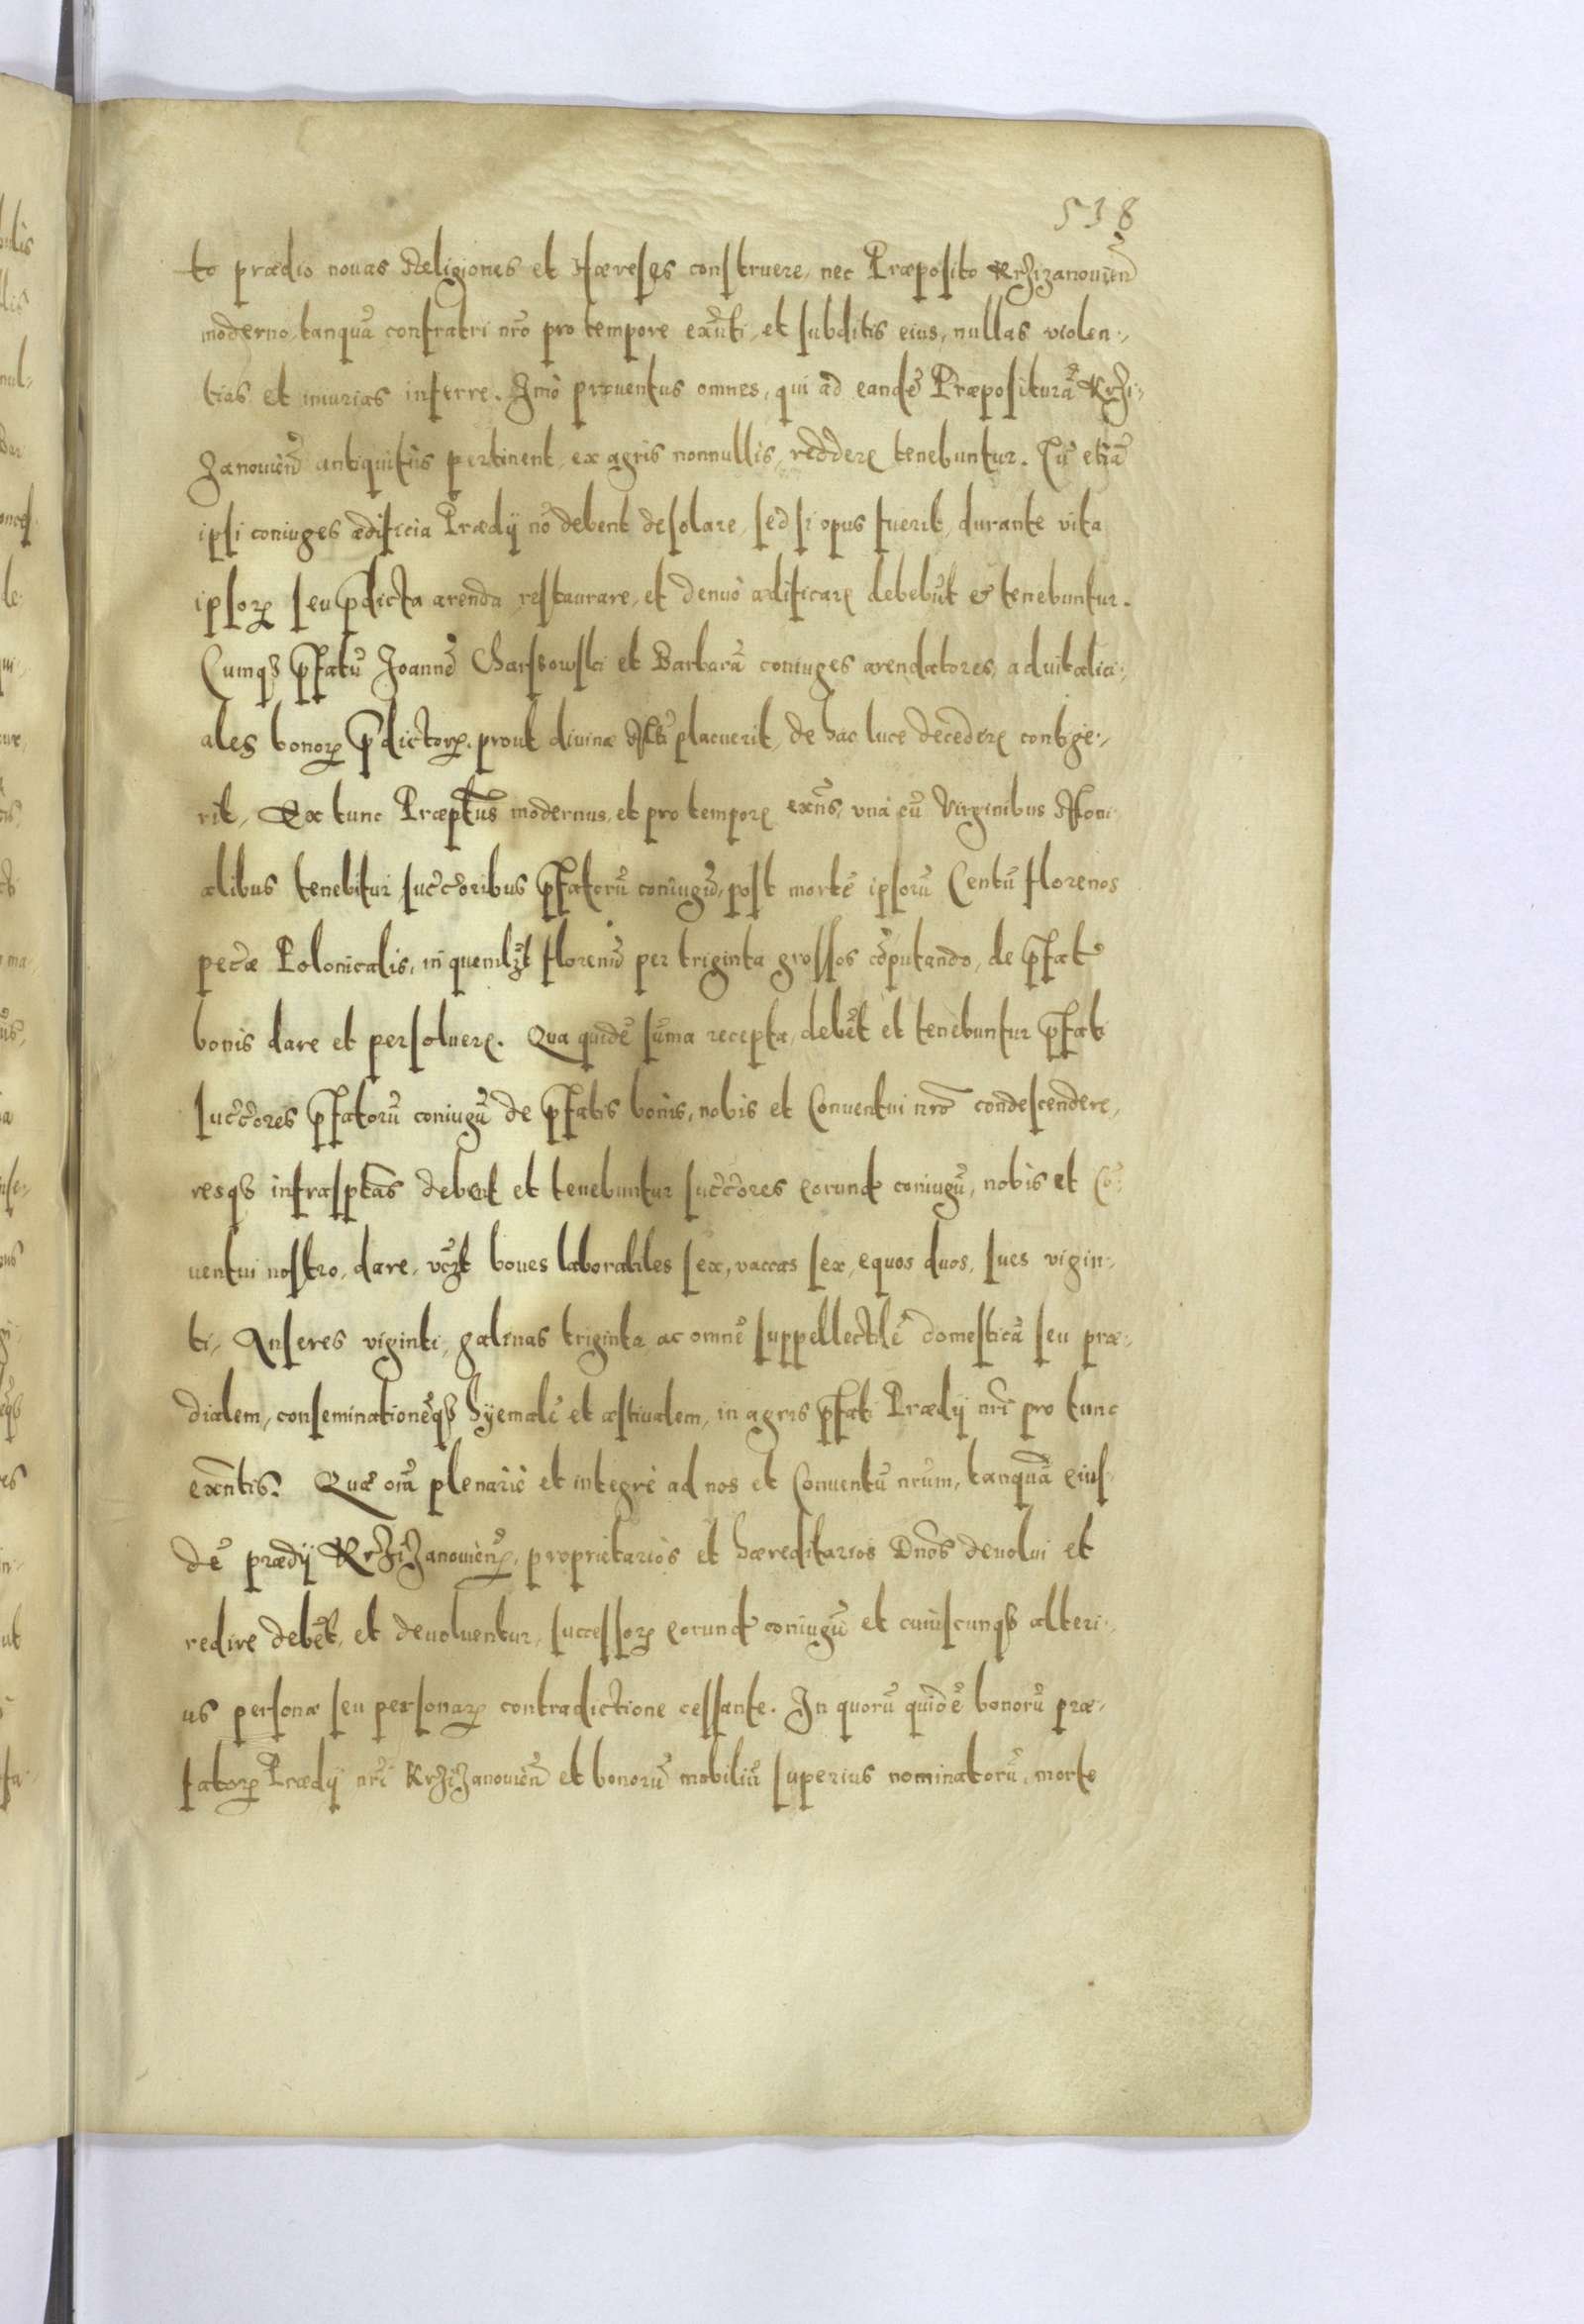 518
to prædio nouas Religiones et Hæreses construere, nec Præposito Krzizanouien̄
moderno, tanquā confratri nr̄o pro tempore exn̄ti, et subditis eius, nullas violen:,
tias et iniurias inferre. Imò prouentus omnes, qui ad eandē Præpositurā Krzi:,
zanouien̄ antiquitùs pertinent, ex agris nonnullis, reddere tenebuntur. Cū etiā
ipsi coniuges ædificia Prædij nō debent desolare, sed si opus fuerit, durante vita
ipsoꝝ seu p̄dicta arenda restaurare, et denuò ædificare debebūt & tenebuntur.
Cumqꝫ p̄fatū Joannē Charssowski et Barbarā coniuges arendatores, aduitalici:,
ales bonoꝝ p̄dictoꝝ, prout diuinæ Mti placuerit, de hac luce decedere contige:,
rit, Ex tunc Præptūs modernus, et pro tempore exn̄s, vnà cū Virginibus Moni:
alibus tenebitur succ̄oribus p̄fatorū coniugū, post mortē ipsorū Centū florenos
pec̄æ Polonicalis, in quemlꝫt florenū per triginta grossos cōputando, de p̄fat̄
bonis dare et persoluere. Qua quidē sūma recepta, debēt et tenebuntur p̄fati
succ̄ores p̄fatorū coniugū de p̄fatis bonis, nobis et Conuentui nr̄o condescendere,
resqꝫ infrasptas debent et tenebuntur succ̄ores eorund̄ coniugū, nobis et Cō:
uentui nostro, dare, vꝫt boues laborabiles sex, vaccas sex, equos duos, sues vigin:,
ti, Anseres viginti, galinas triginta, ac omnē suppellectilē domesticā seu præ:,
dialem, conseminationēqꝫ hyemalē et æstiualem, in agris p̄fati Prædij nr̄i pro tunc
exn̄tis. Quæ oīa plenariè et integrè ad nos et Conuentū nr̄um, tanquā eius:
dē prædij Krzizanouien̄, proprietarios et hæreditarios Dnōs deuolui et
redire debēt, et deuoluentur, successoꝝ eorund̄ coniugū et cuiuscunqꝫ alteri:,
us personæ seu personaꝝ contradictione cessante. In quorū quidē bonorū præ:,
fatoꝝ Prædij nr̄i Krzizanouien̄ et bonorū mobiliū superius nominatorū, morte